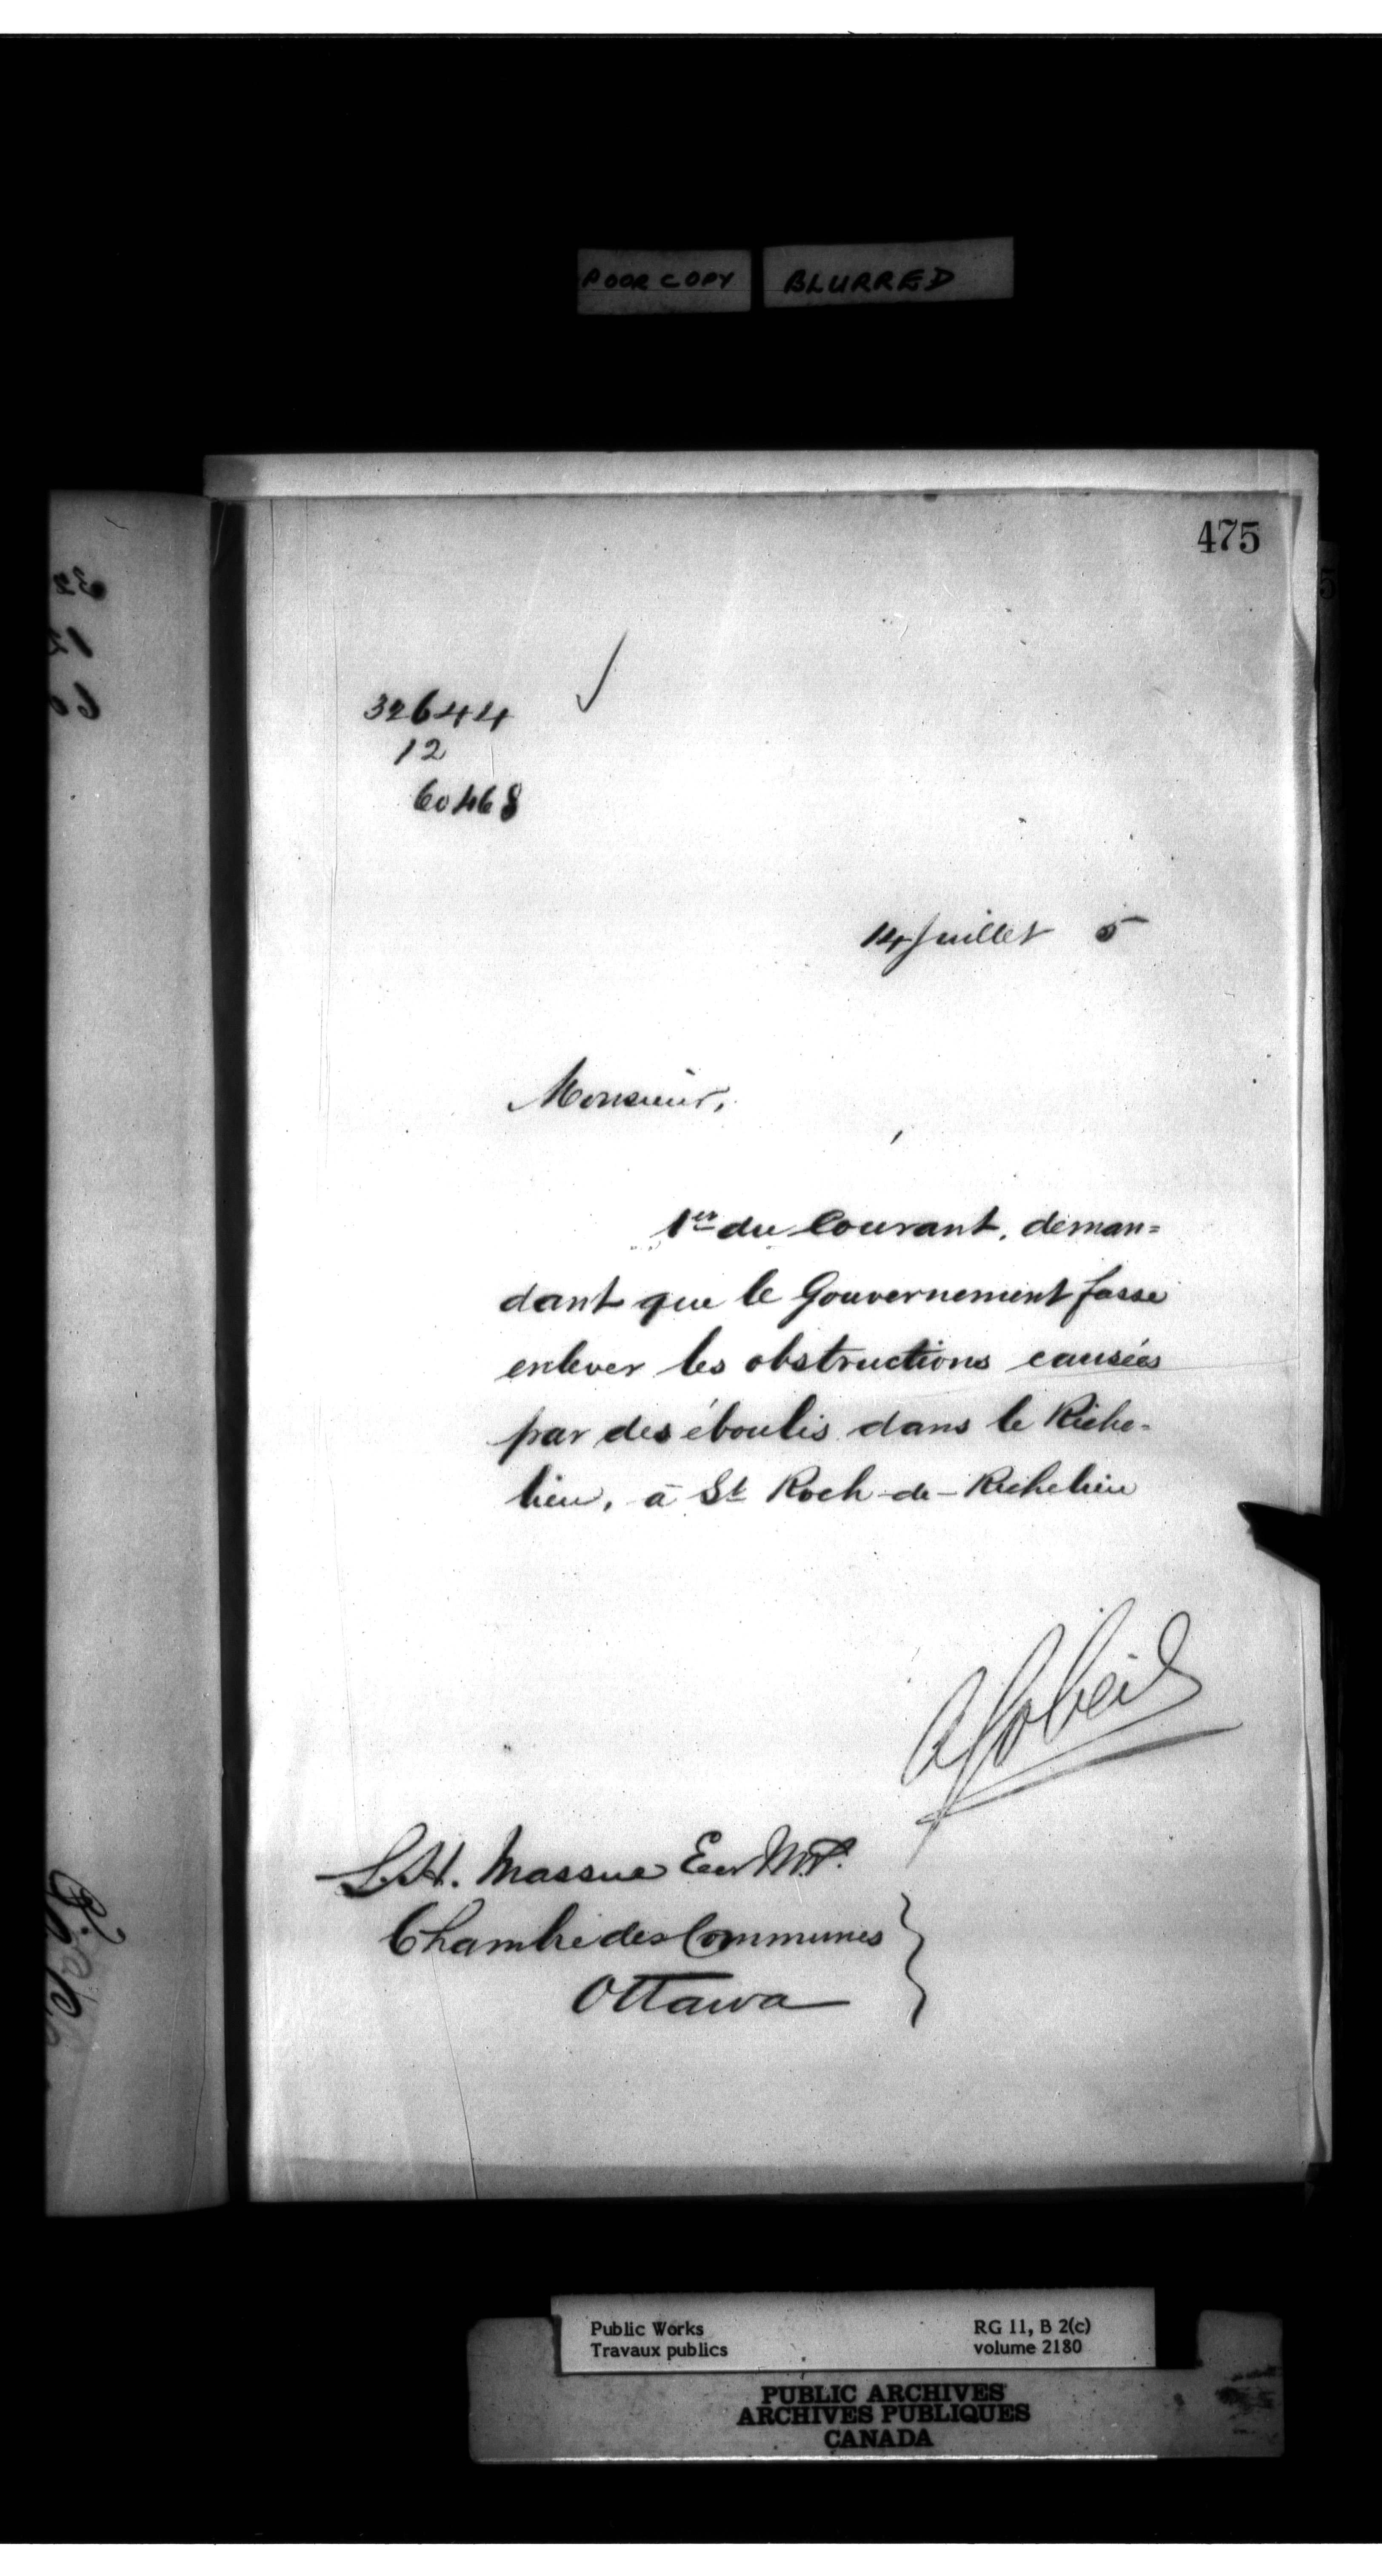 POOR COPY BLURRED
475
32644
12
60468
14 Juillet 5
Monsieur,
1er du Courant, deman=
dant que le Gouvernement fasse
enlever les obstructions causées
par des éboulis dans le Riche-
lieu, à St Roch-de-Richelieu
A Gobeil
L.H. Massue Ecr M.P.
Chambre des Communes
Ottawa
Public Works
Travaux publics
RG 11, B 2(c)
volume 2180
PUBLIC ARCHIVES
ARCHIVES PUBLIQUES
CANADA